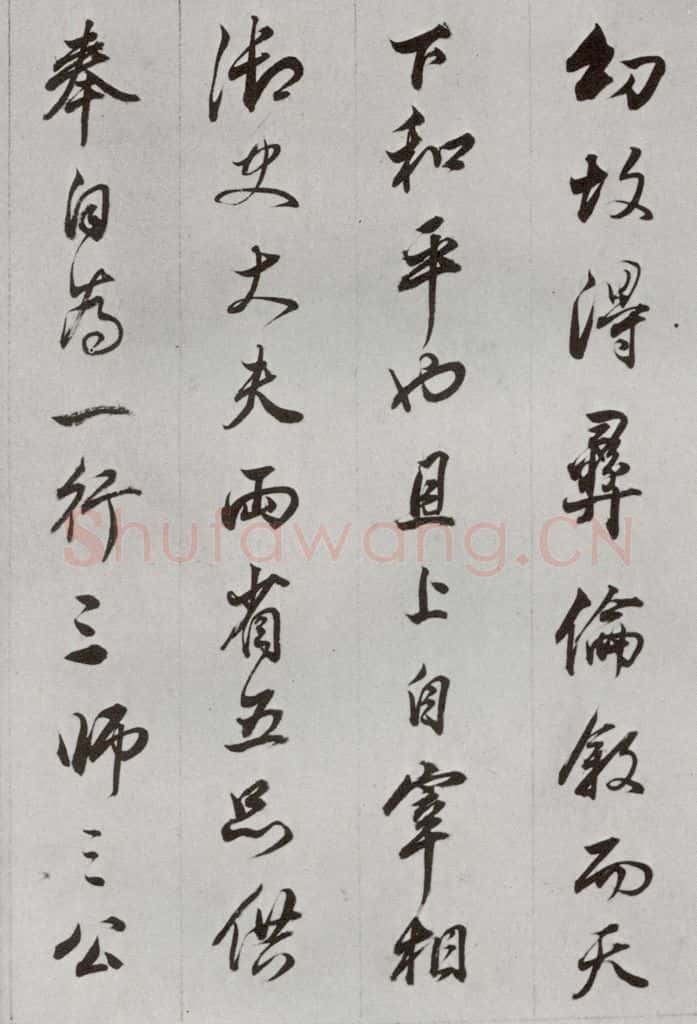 幼故得彝倫敘而天
下和平也且上自宰相
御史大夫兩省五品供
奉自為一行三師三公
Shufawang.CN